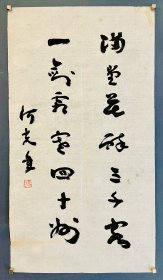 满堂花醉三千客
一剑霜寒四十州